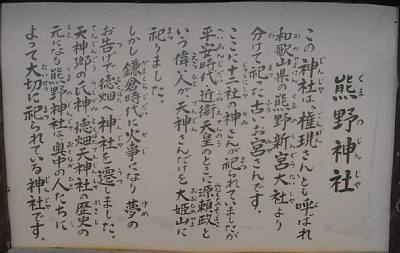 熊野神社
この神社は、権現さんとも呼ばれ
和歌山県の熊野新宮大社より
分けて祀った古いお宮さんです。
ここに十二社の神さんが祀られていましたが
平安時代、近衛天皇のときに源頼政と
いう偉い人が天神さんだけを大姫山に
祀りました。
しかし鎌倉時代に火事になり夢の
お告げで徳畑に神社を還しました。
天神郷の氏神、徳畑天神社の歴史の
元になる熊野神社は奥中の人たちに
よって大切に祀られている神社です。